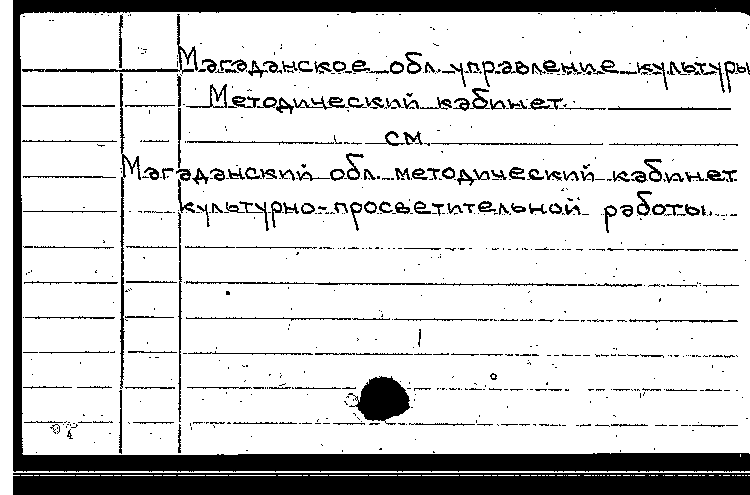 Магаданское обл. управление культуры
Методический кабинет.
см.
Магаданский обл. методический кабинет
культурно-просветительной работы.